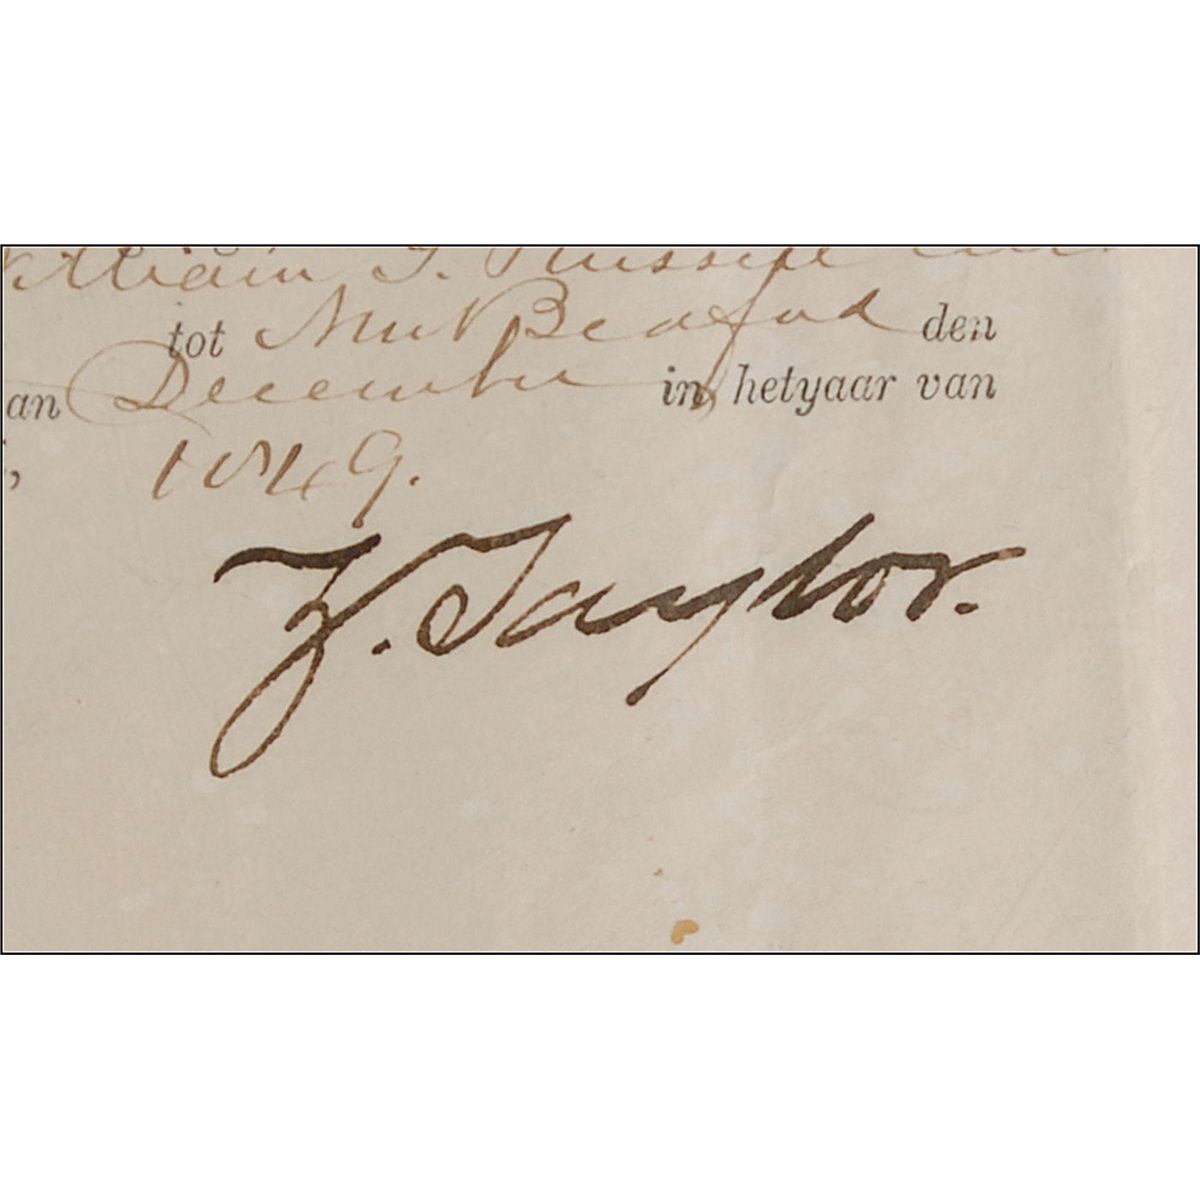 William T. Russell
tot New Bedford den
an December in hetyaar van
, 1849.
Z. Taylor.